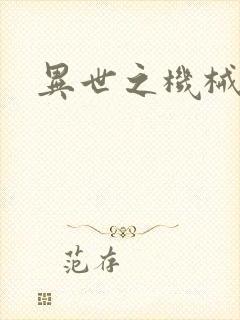 異世之機械
范存